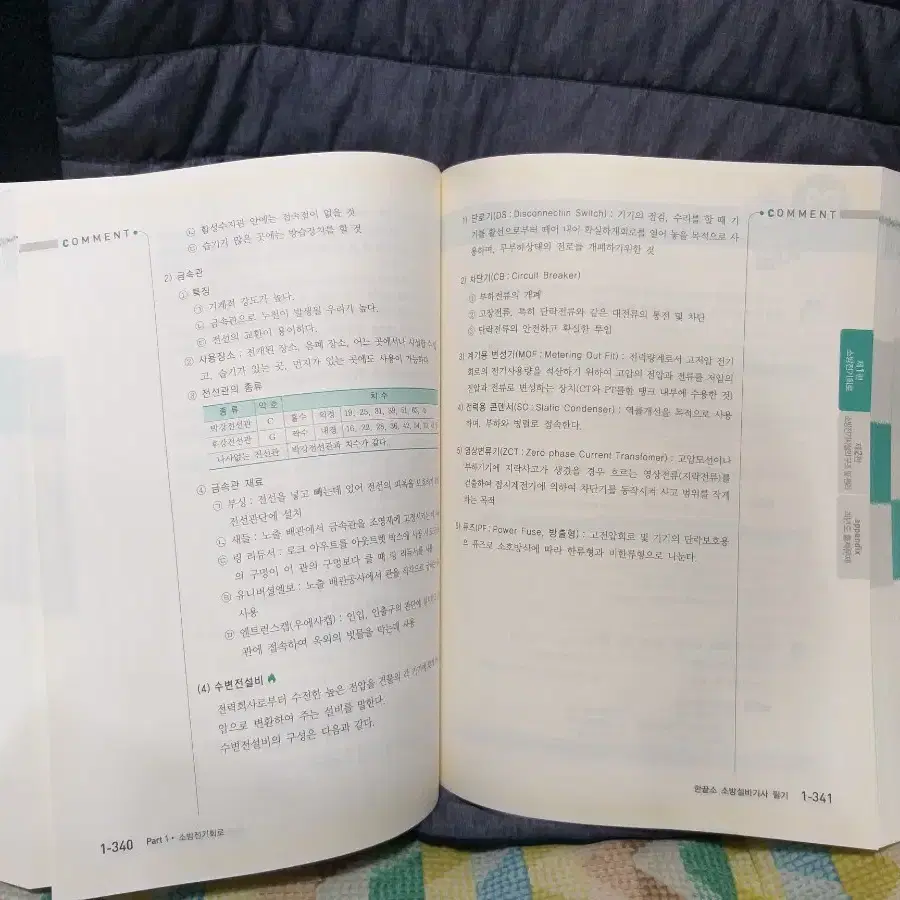 COMMENT
㉡ 합성수지관 안에는 접속점이 없을 것
㉢ 습기가 많은 곳에는 방습장치를 할 것
2) 금속관
① 특징
㉠ 기계적 강도가 높다.
㉡ 금속관으로 누전이 발생될 우려가 높다.
㉢ 전선의 교환이 용이하다.
② 사용장소 : 전개된 장소, 은폐 장소, 어느 곳에서나 시설할 수
고, 습기가 있는 곳, 먼지가 있는 곳에도 사용이 가능하다
③ 전선관의 종류
종 류 약 호 치 수
박강전선관 C 홀수 외경 19, 25, 31, 39, 51, 63,
후강전선관 G 짝수 내경 16, 22, 28, 36, 42, 54,
나사없는 전선관 박강전선관과 치수가 같다.
④ 금속관 재료
㉠ 부싱 : 전선을 넣고 빼는데 있어 전선의 피복을
전선관단에 설치
㉡ 새들 : 노출 배관에서 금속관을 조영재에 고정시키는데
㉢ 링 리듀서 : 로크 아우트를 아웃트렛 박스에
의 구멍이 이 관의 구멍보다 클 때, 링 리듀서를
유니버셜엘보 : 노출 배관공사에서 관을 직각으로
사용
엔트런스캡(우에사캡) : 인입, 인출구의 관단에
관에 접속하여 옥외의 빗물을 막는데 사용
(4) 수변전설비
전력회사로부터 수전한 높은 전압을 건물의 각
압으로 변환하여 주는 설비를 말한다.
수변전설비의 구성은 다음과 같다.
1-340 Part 1 • 소방전기회로
COMMENT
1) 단로기(DS : Disconnectin Switch) : 기기의 점검, 수리를 할 때 기
기를 활선으로부터 떼어 내어 확실하게회로를 열어 놓을 목적으로 사
용하며, 무부하상태의 전로를 개폐하기위한 것
2) 차단기(CB : Circuit Breaker)
① 부하전류의 개폐
② 고장전류, 특히 단락전류와 같은 대전류의 통전 및 차단
단락전류의 안전하고 확실한 투입
3) 계기용 변성기(MOF : Metering Out Fit) : 전력량계로서 고저압 전기
회로의 전기사용량을 적산하기 위하여 고압의 전압과 전류를 저압의
전압과 전류로 변성하는 장치(CT와 PT를한 탱크 내부에 수용한 것)
4) 전력용 콘덴서(SC : Static Condenser) : 역률개선을 목적으로 사용
하며, 부하와 병렬로 접속한다.
5) 영상변류기(ZCT : Zero phase Current Transfomer) : 고압모선이나
부하기기에 지락사고가 생겼을 경우 흐르는 영상전류(지락전류)를
검출하여 접지계전기에 의하여 차단기를 동작시켜 사고 범위를 작게
하는 목적
6) 퓨즈(PF : Power Fuse, 방출형) : 고전압회로 및 기기의 단락보호용
으 퓨즈로 소호방식에 따라 한류형과 비한류형으로 나눈다.
제1편
소방전기회로
제2편
appendix
한끝소 소방설비기사 필기 1-341